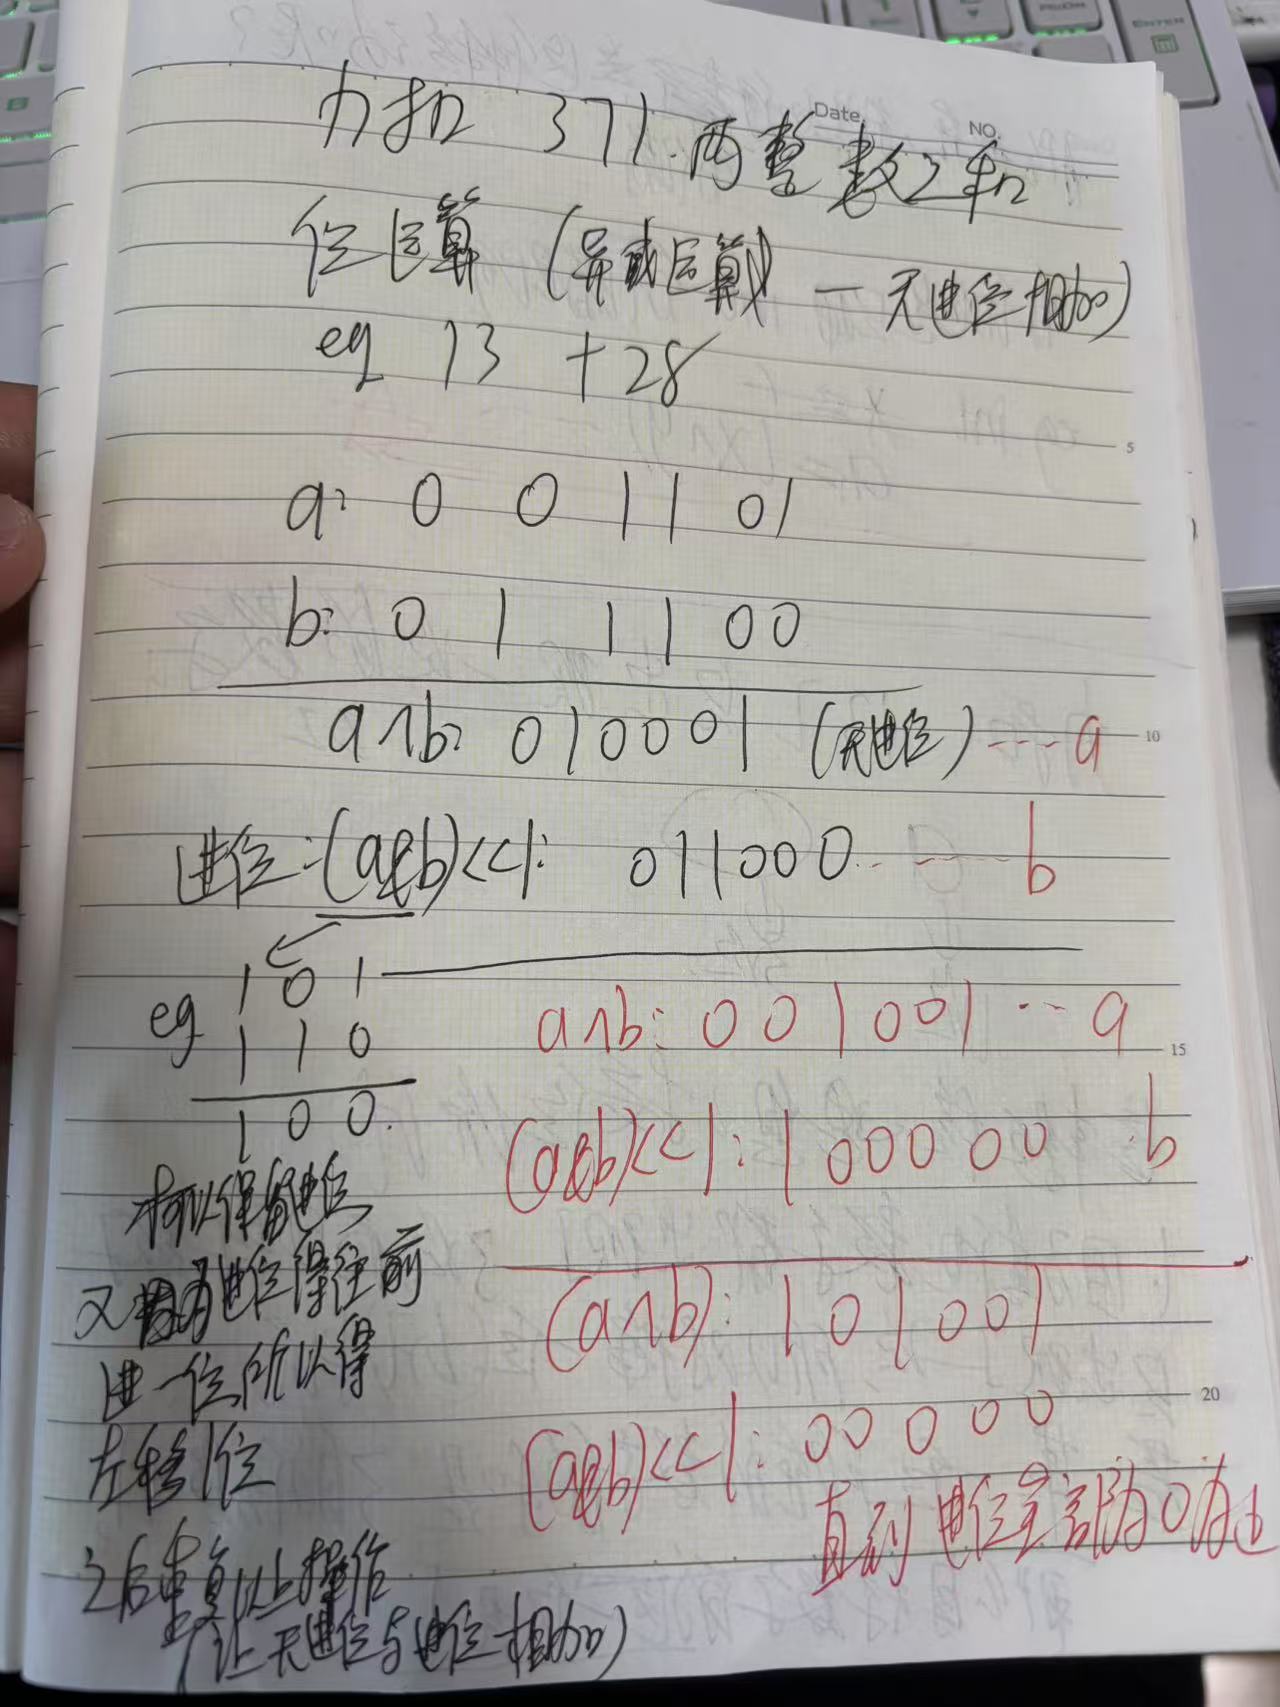 Date.
NO.
力扣 371.两整数之和
位运算 (异或运算 — 无进位相加)
eg 13 + 28
5
a: 0 0 1 1 0 1
b: 0 1 1 1 0 0
a^b: 0 1 0 0 0 1 (无进位) ---a
10
进位:(a&b)<<1: 0 1 1 0 0 0 ----- b
eg 1 0 1
1 1 0
1 0 0.
可以保留进位
又因为进位得往前
进一位,所以得
左移1位
之后重复以上操作
(让无进位与进位相加)
a^b: 0 0 1 0 0 1 --- a
15
(a&b)<<1: 1 0 0 0 0 0 .b
(a^b): 1 0 1 0 0 1
20
(a&b)<<1: 0 0 0 0 0
直到进位全部为0为止